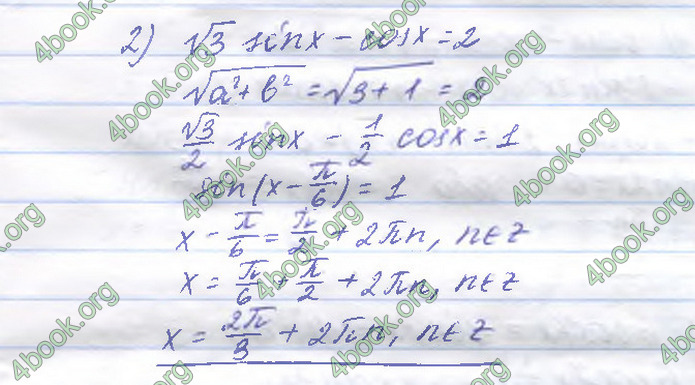 2) √3 sinx - cosx = 2
√(a²+b²) = √(3+1) = 2
√3/2 sinx - 1/2 cosx = 1
sin(x - π/6) = 1
x - π/6 = π/2 + 2πn, n∈z
x = π/6 + π/2 + 2πn, n∈z
x = 2π/3 + 2πn, n∈z
4book.org
4book.org
4book.org
4book.org
4book.org
4book.org
4book.org
4book.org
4book.org
4book.org